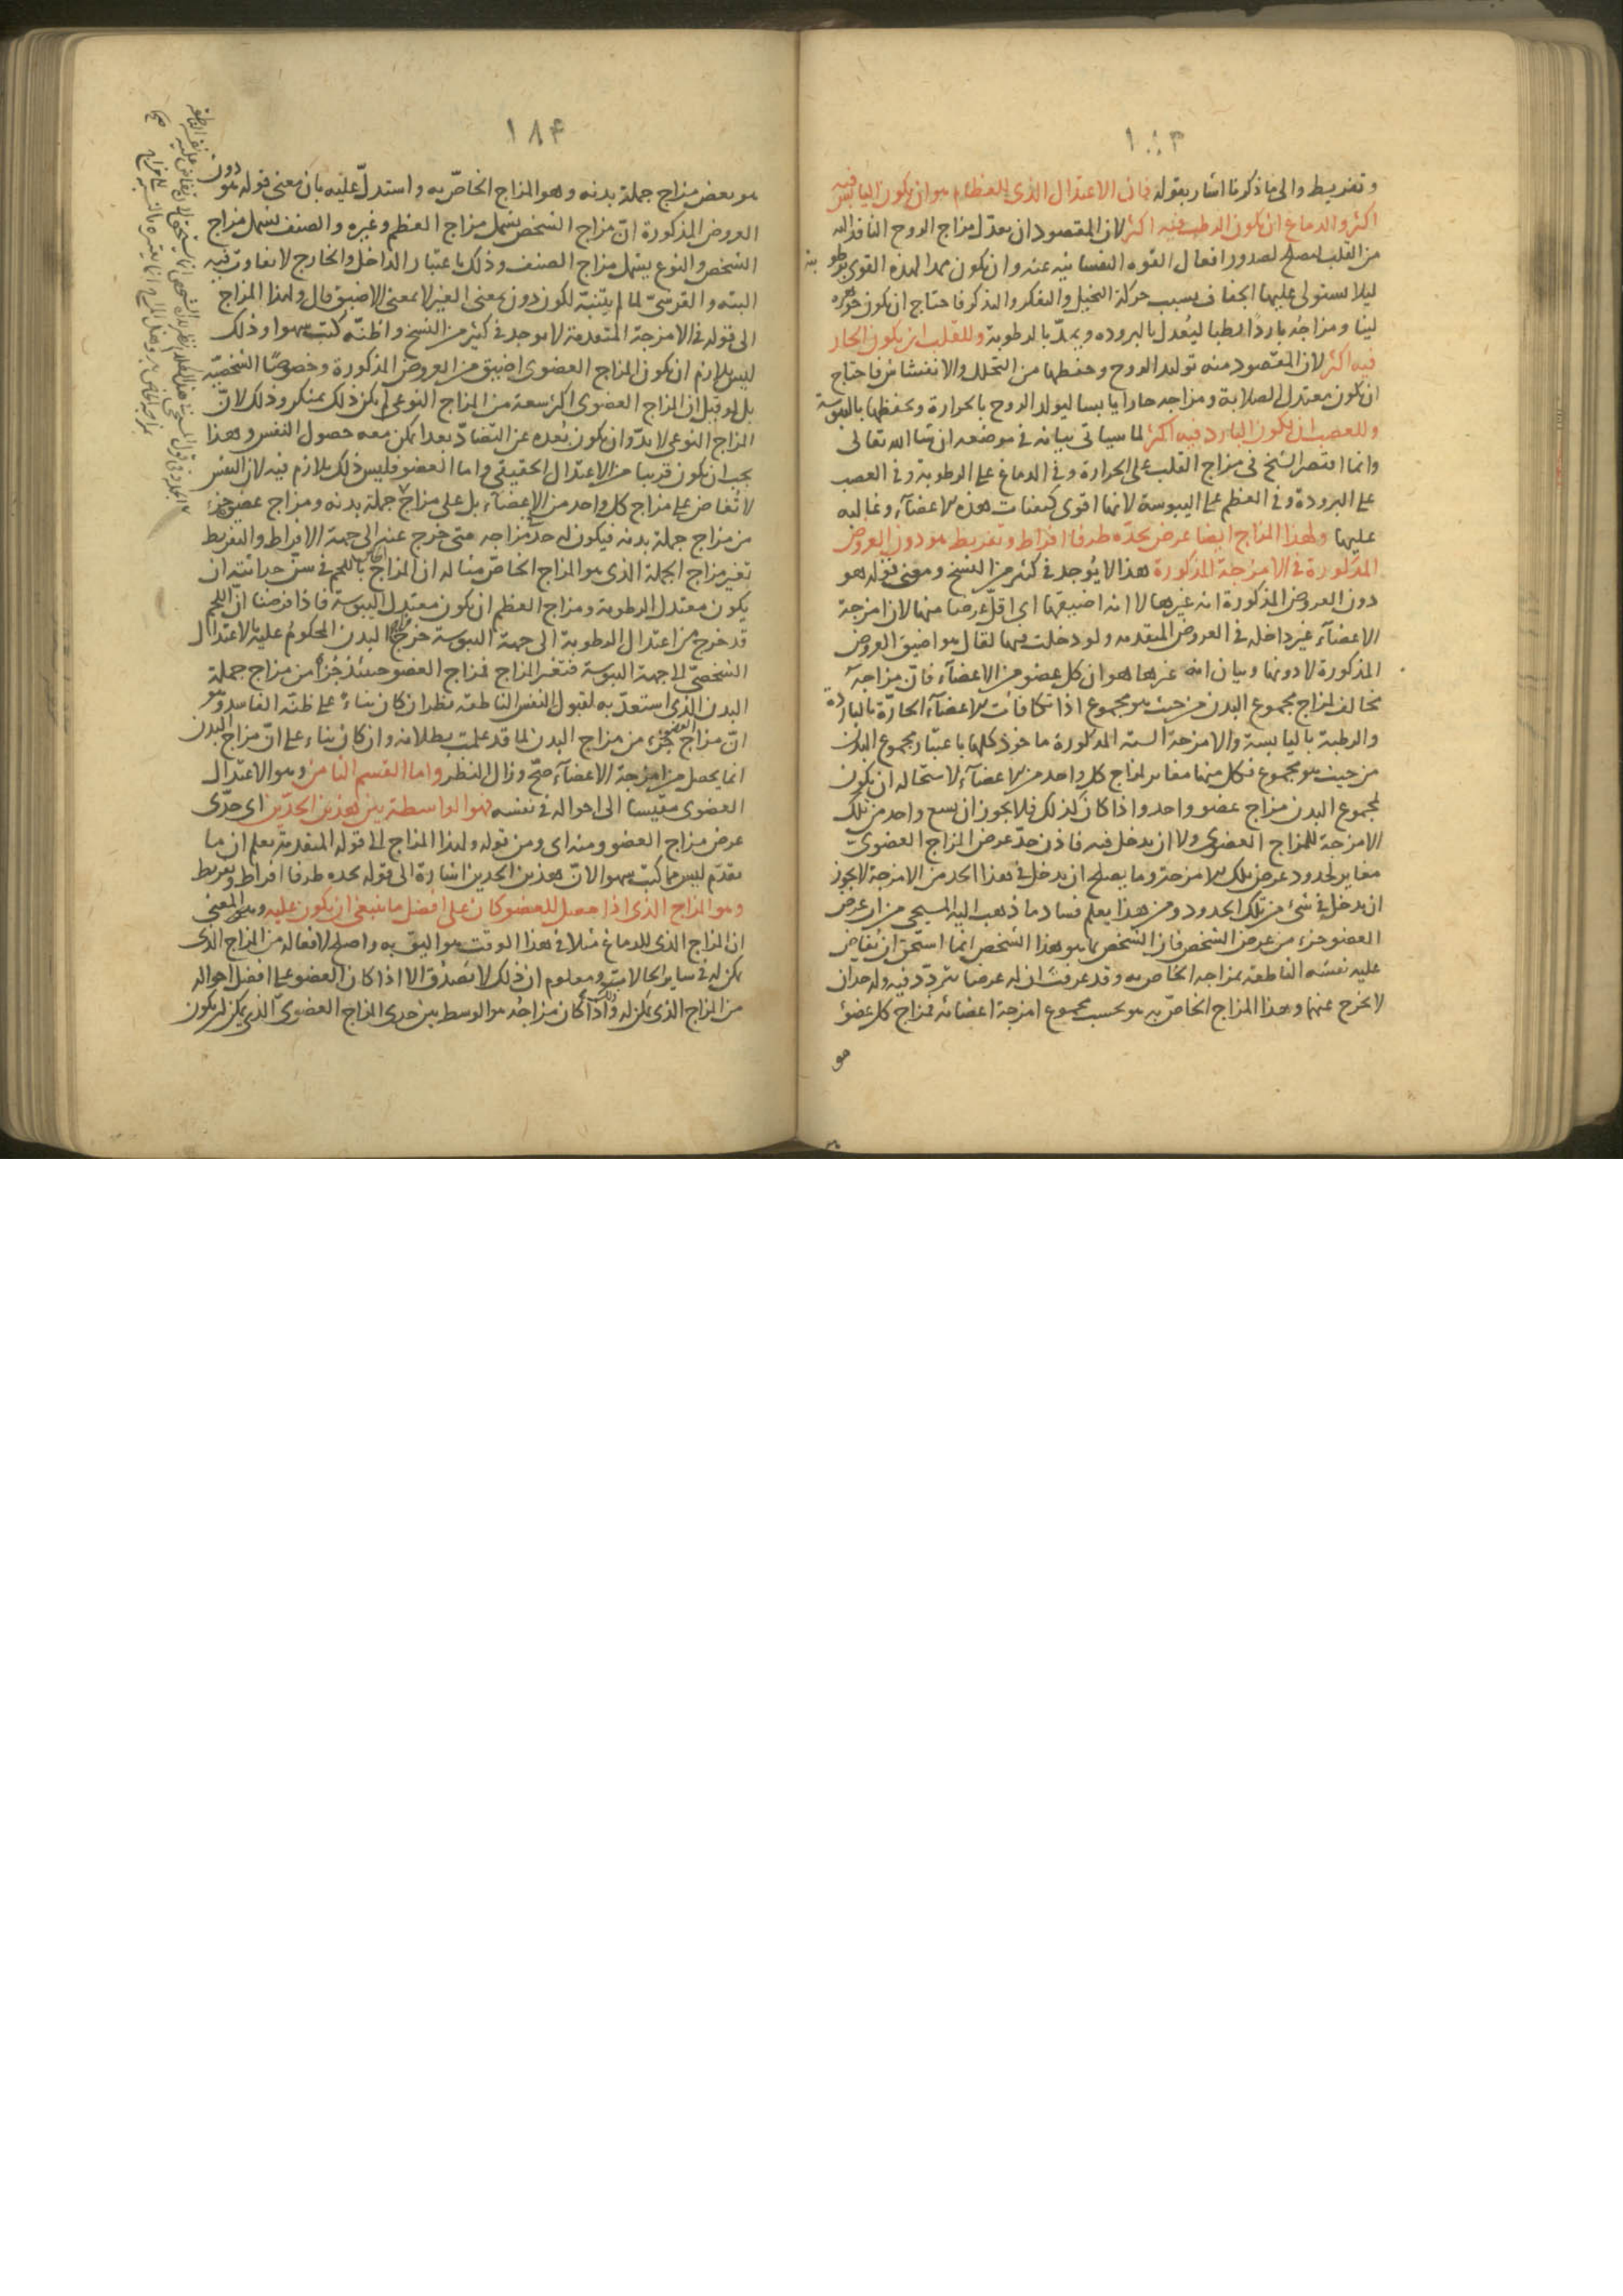 ١٨٣
وتفريط والى ما ذكرنا اشار بقوله فان الاعتدال الذى للعظام هو ان يكون اليابس فيه
اكثر والدماغ ان يكون الرطب فيه اكثر لان المقصود ان يعدل مزاج الروح النافذ اليه
من القلب ليصلح لصدور افعال القوه النفسانيه عنه وان يكون ممدا لهذه القوى برطوبته
ليلا يستولى عليها الجفاف بسبب حركة التخيل والتفكر والتذكر فاحتاج ان يكون جوهره
لينا ومزاجه باردا رطبا ليعدل بالبروده ويمدّ بالرطوبة وللقلب ان يكون الحار
فيه اكثر لان المقصود منه توليد الروح وحفظها من التحلل والانفشاش فاحتاج
ان يكون معتدل الصلابة ومزاجه حارا يابسا ليولد الروح بالحرارة ويحفظها باليبوسة
وللعصب ان يكون البارد فيه اكثر لما سياتى بيانه فى موضعه ان شا الله تعالى
وانما اقتصر الشيخ فى مزاج القلب على الحرارة وفى الدماغ على الرطوبة وفى العصب
على البرودة وفى العظم على اليبوسة لانها اقوى كيفيات هذه الاعضآء وغالبه
عليها ولهذا المزاج ايضا عرض يحدّه طرفا افراط وتفريط هو دون العروض
المذكورة فى الامزجة المذكورة هذا لا يُوجد فى كثير من النسخ ومعنى قوله هو
دون العروض المذكورة انه غيرها لا انه اضيقها اى اقلّ عرضا منها لان امزجة
الاعضآء غير داخله فى العروض المتقدمه ولو دخلت فيها لقال هو اضيق العروض
المذكورة لا دونها وبيان انه غيرها هو ان كل عضو من الاعضآء فانّ مزاجه
مخالف لمزاج مجموع البدن من حيث هو مجموع اذا تكافأت الاعضآء الحارّة بالباردة
والرطبة باليابسة والامزجة الستة المذكورة ماخوذ كلها باعتبار مجموع البدن
من حيث هو مجموع فكل منها مغاير لمزاج كل واحد من الاعضآء لاستحاله ان يكون
لمجموع البدن مزاج عضو واحد واذا كان كذلك فلا يجوز ان يسع واحد من تلك
الامزجة للمزاج العضوى ولا ان يدخل فيه فاذن حدّ عرض المزاج العضوىّ
مغاير لحدود عرض تلك الامزجة وما يصلح ان يدخل فى هذا الحد من الامزجة لا يجوز
ان يدخل فى شئ من تلك الحدود ومن هذا يعلم فساد ما ذهب اليه المسيحى من ان عرض
العضو جزء من عرض الشخص فان الشخص بما هو هذا الشخص انما استحق ان يُفاض
عليه نفسه الناطقه بمزاجه الخاص به وقد عرفت ان له عرضا يتردّد فيه وله حدان
لا يخرج عنهما وهذا المزاج الخاصّ به هو بحسب مجموع امزجة اعضائه فمزاج كل عضو
هو
١٨۴
هو بعض مزاج جملة بدنه وهو المزاج الخاصّ به واستدلّ عليه بان معنى قوله هو دون
العروض المذكورة انّ مزاج الشخص يشمل مزاج العظم وغيره والصنف يشمل مزاج
الشخص والنوع يشمل مزاج الصنف وذلك باعتبار الداخل والخارج لا تفاوت فيه
البته والقرشىّ لما لم يتنبه لكون دون بمعنى الغير لا بمعنى الاضيق قال ولهذا المزاج
الى قوله فى الامزجة المتقدمة لا يوجد فى كثير من النسخ واظنّه كُتب سهوا وذلك
ليس يلزم ان يكون المزاج العضوى اضيق من العروض المذكورة وخصوصًا الشخصيّه
بل لو قيل ان المزاج العضوى اكثر سعة من المزاج النوعى لم يكن ذلك بمنكر وذلك لانّ
المزاج النوعى لا بدّ وان يكون بُعده عن التضادّ بعدا يمكن معه حصول النفس وهذا
يجب ان يكون قريبا من الاعتدال الحقيقى واما العضو فليس ذلك بلازم فيه لان النفس
لا تُفاض على مزاج كل واحد من الاعضآء بل على مزاج جملة بدنه ومزاج عضو جزء
من مزاج جملة بدنه فيكون له حدّ مزاجه متى خرج عنه الى جهة الافراط والتفريط
تغير مزاج الجملة الذى هو المزاج الخاصّ مثاله ان المزاج الخاص باللحم فى سن حداثته ان
يكون معتدل الرطوبة ومزاج العظم ان يكون معتدل اليبوسة فاذا فرضنا انّ اللحم
قد خرج من اعتدال الرطوبة الى جهة اليبوسة خرج مزاج البدن المحكومُ عليه بالاعتدال
الشخصىّ الى جهة اليبوسة فتغير المزاج فمزاج العضو حينئذ جُزأ من مزاج جملة
البدن الذى استعدّ به لقبول النفس الناطقه نظر ان كان بناءً على ظنّه الفاسد وهو
انّ مزاج العضو جزء من مزاج البدن لما قد علمت بطلانه وان كان بناء على انّ مزاج البدن
انما يحصل من امزجة الاعضآء صحّ وزال النظر واما القسم الثامن وهو الاعتدال
العضوى مقيسا الى احواله فى نفسه فهو الواسطة بين هذين الحدّين اى حدّى
عرض مزاج العضو ومنه اى ومن قوله ولهذا المزاج الى قوله المتقدمة يعلم ان ما
تقدّم ليس مما كتب سهوا لانّ هذين الحدين اشارة الى قوله يحده طرفا افراط وتفريط
وهو المزاج الذى اذا حصل للعضو كان على افضل ما ينبغى ان يكون عليه وهو المعنى
ان المزاج الذى للدماغ مثلا فى هذا الوقت هو اليق به واصلح لافعاله من المزاج الذى
يمكن له فى ساير الحالات ومعلوم ان ذلك لا يصدق الا اذا كان العضو على افضل احواله
من المزاج الذى يمكن له وذلك اذا كان مزاجُه هو الوسط بين حدى المزاج العضوىّ الذى يمكن ان يكون